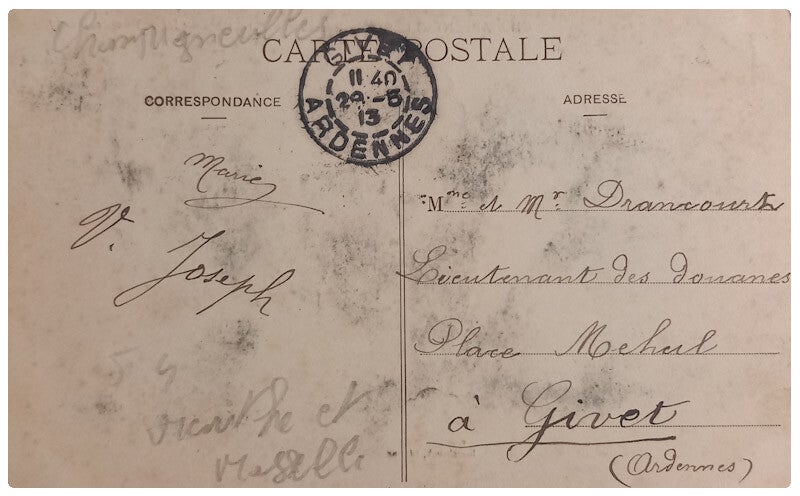 Champigneulles
CARTE POSTALE
GIVET
11 40
29-5
13
ARDENNES
CORRESPONDANCE
ADRESSE
Marie
V. Joseph
Mme et Mr Drancourt
Lieutenant des douanes
Place Mehul
à Givet
(Ardennes)
54
meurthe et
moselle